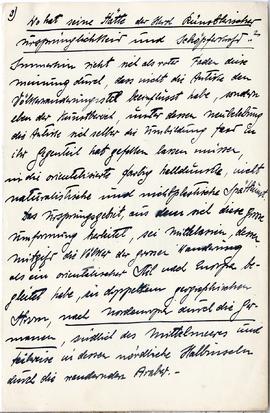 3)
Wo hat seine Stätte der Herd künstlerischer
Ursprünglichkeit und Schöpferkraft?
Immerhin zieht sich als roter Faden diese
Meinung durch, dass nicht die Antike den
Völkerwanderungsstil beeinflusst habe, sondern
eben der Kunst, unter dessen
die Antike sich selber die Umbildung fast in
ihr Gegenteil hat gefallen lassen müssen,
in die orientalisierte farbig helldunkle, nicht
naturalistische und nichtplastische Spätkunst.
Das Ursprungsgebiet, aus dem sich diese grosse
Umformung herleitet, sei Mittelasien, dessen
die Völker der grossen Wanderung
als ein orientalischer Stil nach Europa be-
gleitet habe, in doppeltem geographischen
Strom, nach Nordeuropa durch die Ger-
manen, südlich des Mittelmeeres und
teilweise in dessen nördliche Halbinseln
durch die wandernden Araber.-